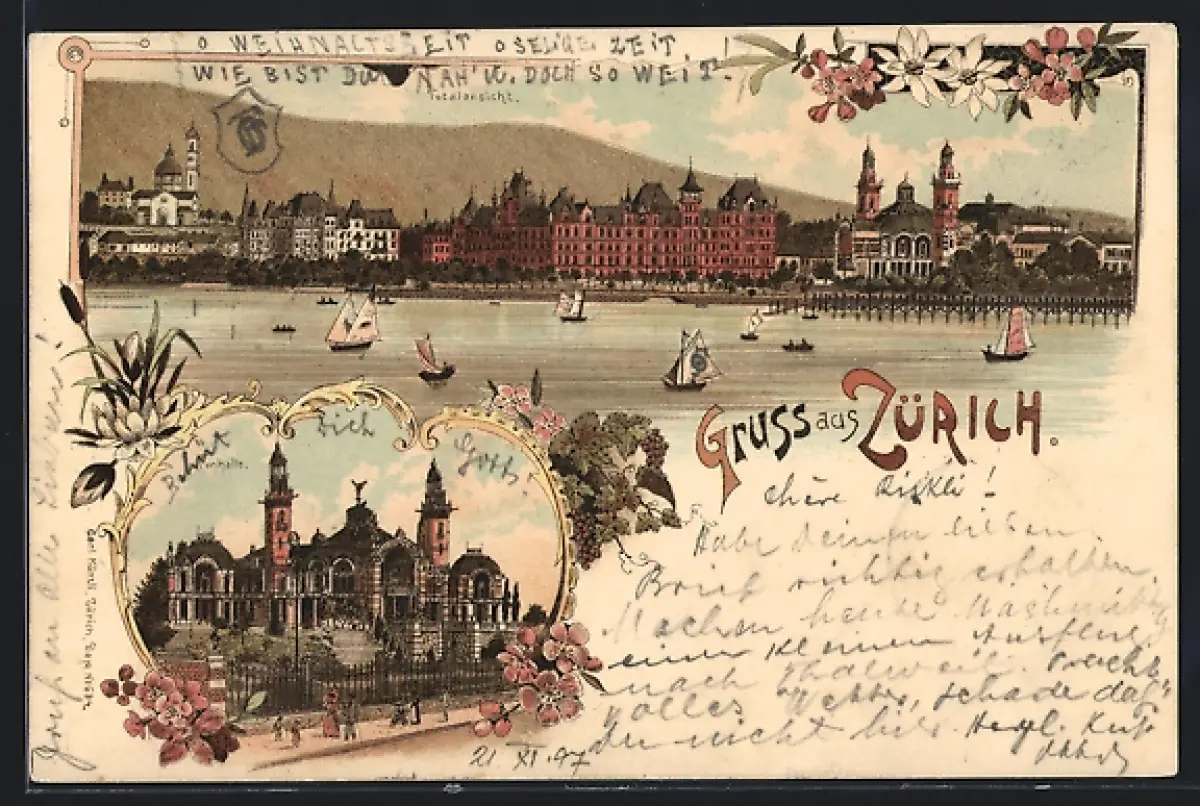 O WEIHNALTSZEIT O SELIGE ZEIT,
WIE BIST DU NAH' U. DOCH SO WEIT!
Totalansicht.
Gruss aus ZÜRICH.
Behüt dich Gott!
Tonhalle.
chère Rikkli!
Habe deinen lieben
Brief richtig erhalten.
Machen heute Nachmittg
einen kleinen Ausflug
nach Thalweil. Pracht-
volles Wetter, schade daß
du nicht hier. Hrzl. Kuß
21 XI. 97
Gruß an alle
Carl Künzli, Zürich,